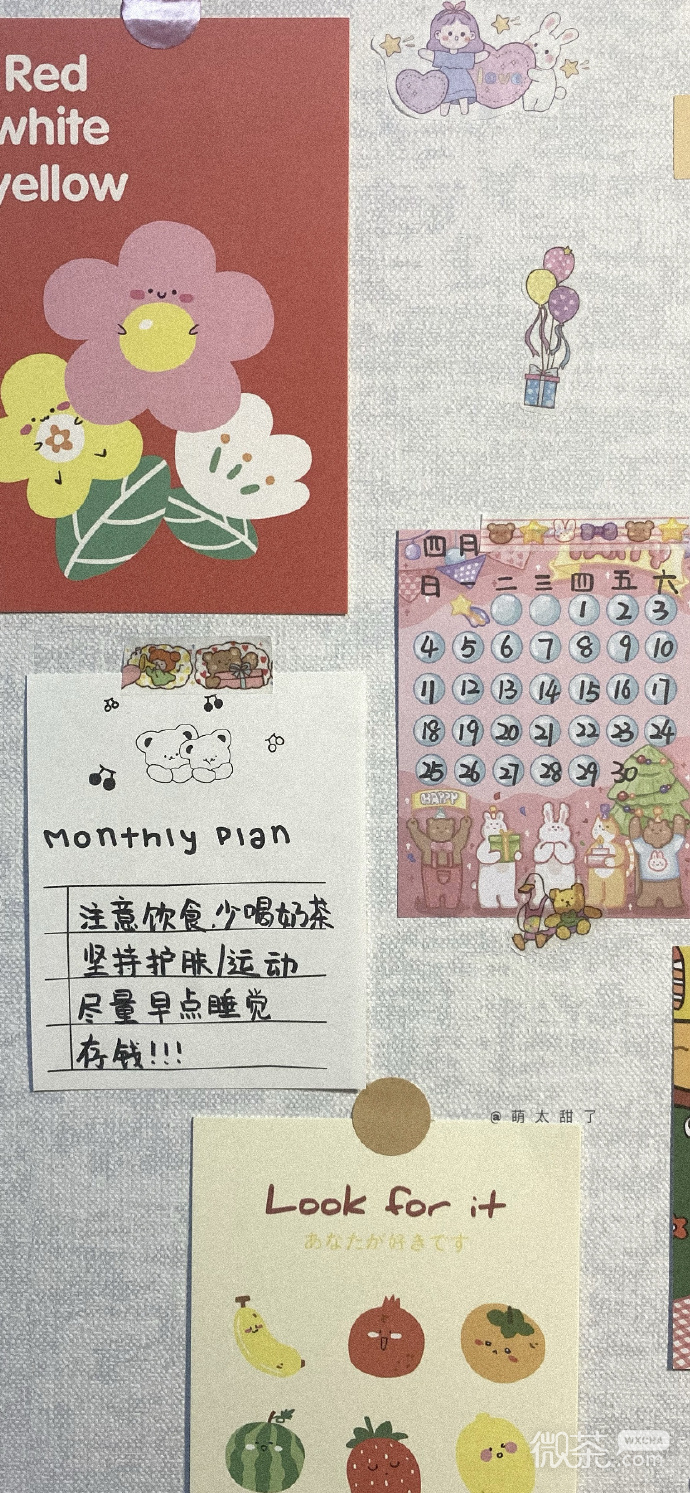 Red
white
yellow
love
四月
日 一 二 三 四 五 六
1 2 3
4 5 6 7 8 9 10
11 12 13 14 15 16 17
18 19 20 21 22 23 24
25 26 27 28 29 30
HAPPY
Monthly Plan
注意饮食.少喝奶茶
坚持护肤/运动
尽量早点睡觉
存钱!!!
@萌太甜了
Look for it
あなたが好きです
微茶
WXCHA
.com